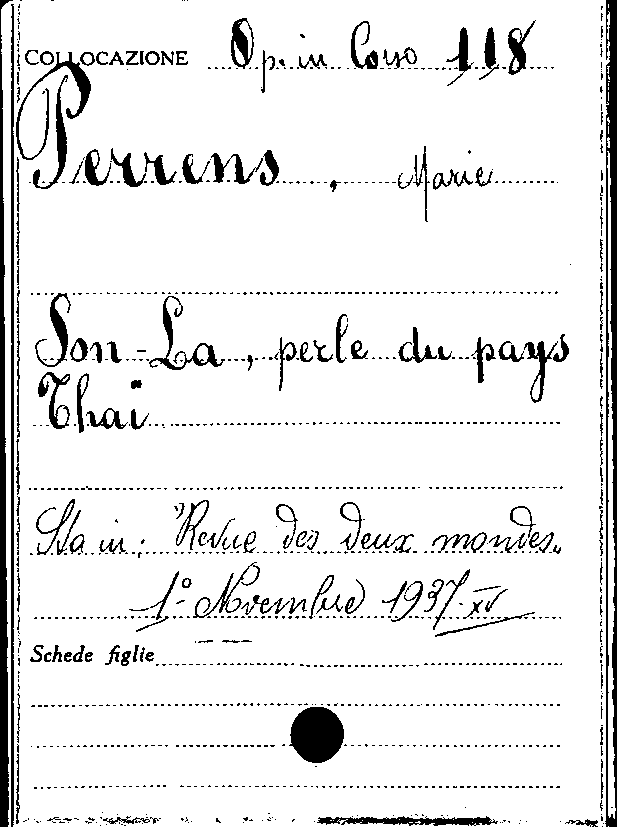 COLLOCAZIONE Op. in Corso 118
Perrens, Marie
Son-La, perle du pays
Thaï
Sta in: "Revue des deux mondes"
1° Novembre 1937.XV
Schede figlie